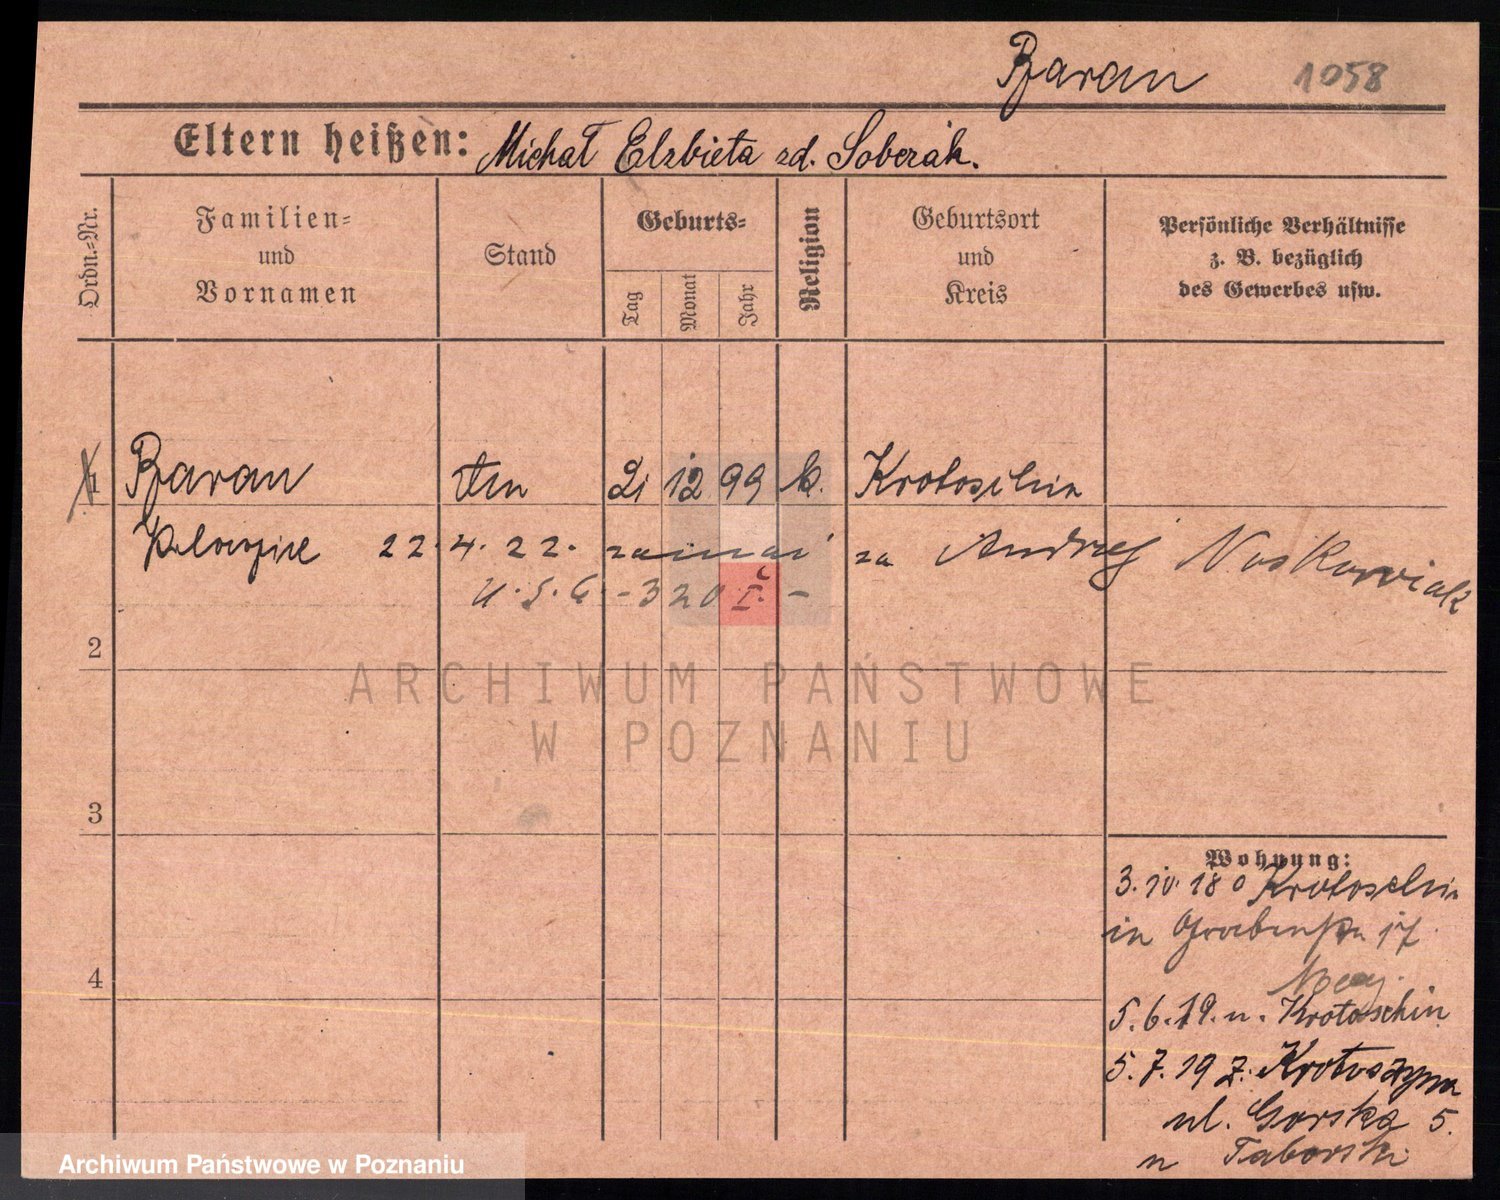 Baran 1058
Eltern heißen: Michał Elzbieta zd. Soberak.
Ordn.-Nr.
Familien-
und
Vornamen
Stand
Geburts-
Tag
Monat
Jahr
Religion
Geburtsort
und
Kreis
Persönliche Verhältnisse
z. B. bezüglich
des Gewerbes usw.
1 Baran 12 99 k. Krotoschin
22.4.22. za Andrzej Noskowiak
320 I. -
2
ARCHIWUM PAŃSTWOWE
W POZNANIU
3
4
Wohnung:
3. 10. 18 Krotoschin
in 17
5.6.19. n. Krotoschin
5.7.19 z. Krotoszyna
ul. Gorska 5.
Taborski
Archiwum Państwowe w Poznaniu